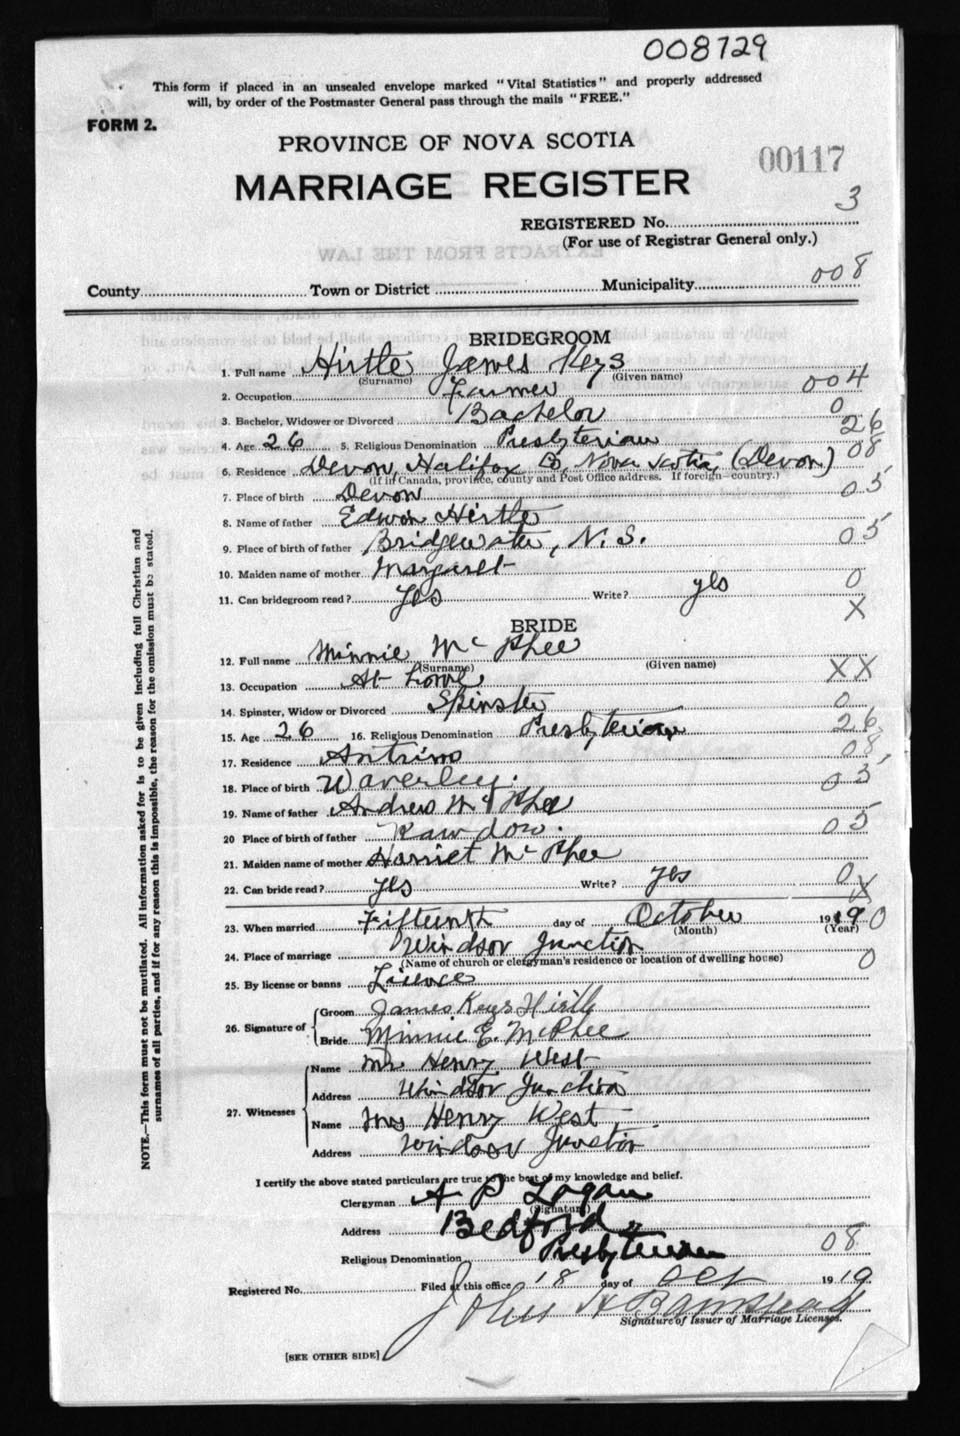 008729
This form if placed in an unsealed envelope marked "Vital Statistics" and properly addressed
will, by order of the Postmaster General pass through the mails "FREE."
FORM 2.
PROVINCE OF NOVA SCOTIA
00117
MARRIAGE REGISTER
3
REGISTERED No.
(For use of Registrar General only.)
County Town or District Municipality 008
BRIDEGROOM
1. Full name Hirtle James Keys
(Surname) (Given name)
2. Occupation Farmer 004
3. Bachelor, Widower or Divorced Bachelor 0
4. Age 26 5. Religious Denomination Presbyterian 26
6. Residence Devon, Halifax Co, Nova Scotia, (Devon) 08
(If in Canada, province, county and Post Office address. If foreign—country.)
7. Place of birth Devon 05
8. Name of father Edwin Hirtle
9. Place of birth of father Bridgewater, N. S. 05
10. Maiden name of mother Margaret
11. Can bridegroom read? Yes Write? yes 0
X
BRIDE
12. Full name Minnie Mc Phee
(Surname) (Given name)
13. Occupation At home XX
14. Spinster, Widow or Divorced Spinster 0
15. Age 26 16. Religious Denomination Presbyterian 26
17. Residence Antrim 08
18. Place of birth Waverley. 05
19. Name of father Andrew Mc Phee
20 Place of birth of father Rawdon. 05
21. Maiden name of mother Harriet Mc Phee
22. Can bride read? yes Write? yes 0
X
23. When married Fifteenth day of October 1919 0
(Month) (Year)
24. Place of marriage Windsor Junction
(Name of church or clergyman's residence or location of dwelling house) 0
25. By license or banns Licence
26. Signature of Groom James Keys Hirtle
Bride Minnie E. McPhee
27. Witnesses Name Mr Henry West
Address Windsor Junction
Name Mrs Henry West
Address Windsor Junction
I certify the above stated particulars are true to the best of my knowledge and belief.
Clergyman A P Logan
(Signature)
Address Bedford
Religious Denomination Presbyterian 08
Registered No. Filed at this office 18 day of Oct 1919
John H
Signature of Issuer of Marriage Licenses.
[SEE OTHER SIDE]
NOTE.—This form must not be mutilated. All information asked for is to be given including full Christian and
surnames of all parties, and if for any reason this is impossible, the reason for the omission must be stated.